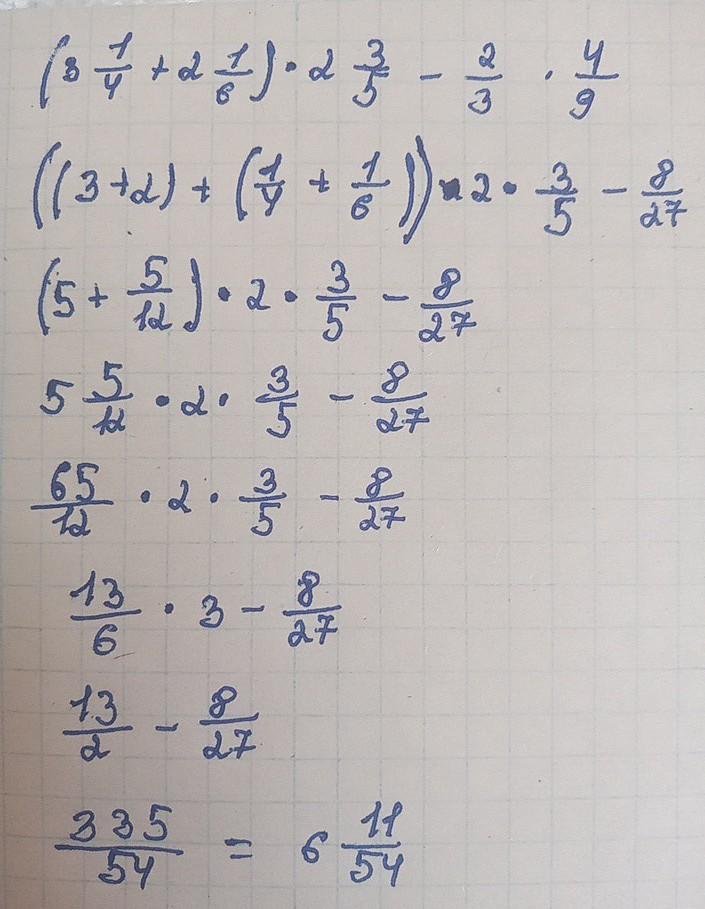 (3 1/4 + 2 1/6) · 2 3/5 - 2/3 · 4/9
((3+2) + (1/4 + 1/6)) · 2 · 3/5 - 8/27
(5 + 5/12) · 2 · 3/5 - 8/27
5 5/12 · 2 · 3/5 - 8/27
65/12 · 2 · 3/5 - 8/27
13/6 · 3 - 8/27
13/2 - 8/27
335/54 = 6 11/54